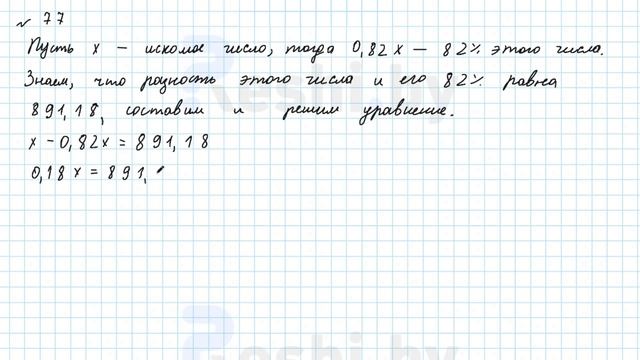 № 77
Пусть x – искомое число, тогда 0,82x – 82% этого числа.
Знаем, что разность этого числа и его 82% равна
891,18, составим и решим уравнение.
x - 0,82x = 891,18
0,18x = 891,
Reshi.by
Reshi.by